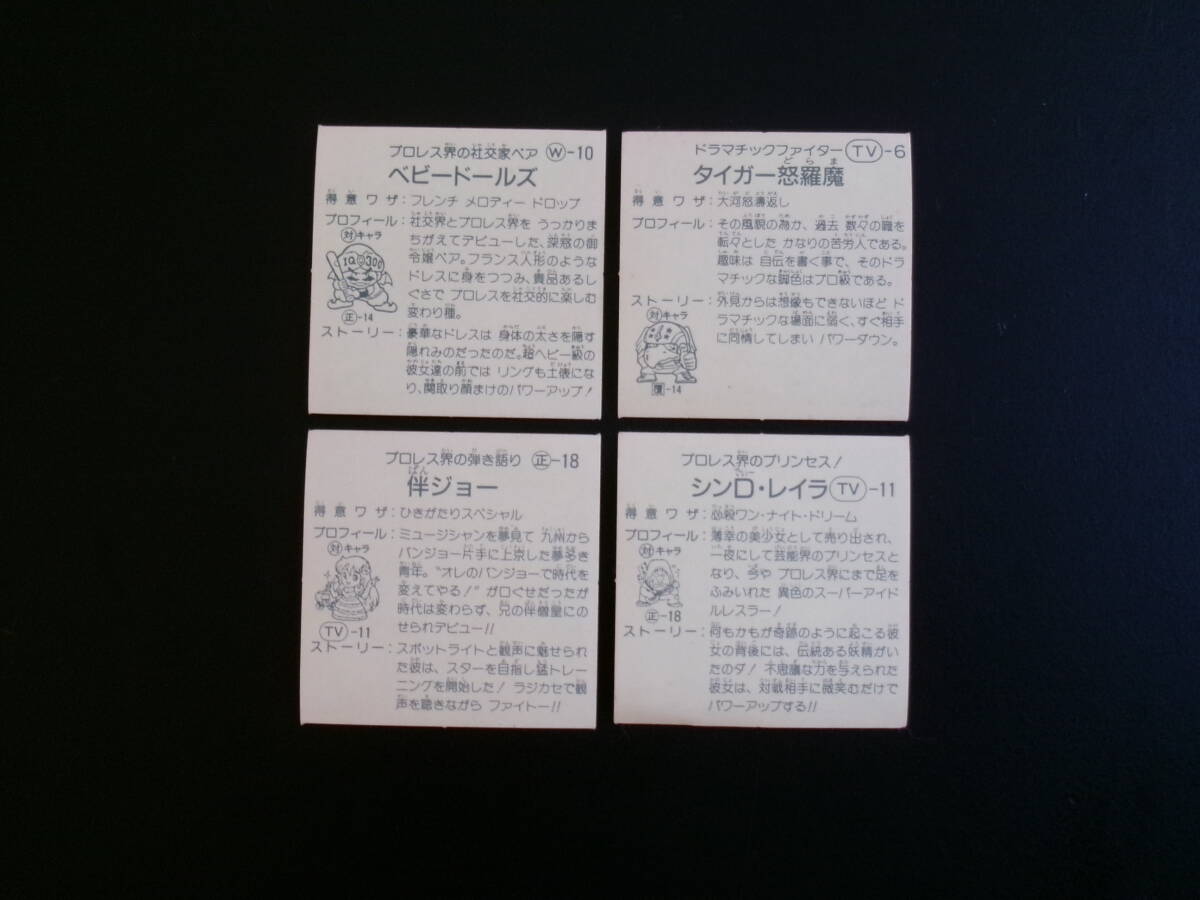 プロレス界の社交家ペア Ⓦ-10
ベビードールズ
得意ワザ：フレンチ メロディー ドロップ
プロフィール：社交界とプロレス界を うっかりま
ちがえてデビューした、深窓の御
令嬢ペア。フランス人形のような
ドレスに身をつつみ、貴品あるし
ぐさで プロレスを社交的に楽しむ
変わり種。
対キャラ
IQ300
正-14
ストーリー：豪華なドレスは 身体の太さを隠す
隠れみのだったのだ。超ヘビー級の
彼女達の前では リングも土俵にな
り、関取り顔まけのパワーアップ！
ドラマチックファイター TV-6
どらま
タイガー怒羅魔
得意ワザ：大河怒濤返し
プロフィール：その風貌の為か、過去 数々の職を
転々とした かなりの苦労人である。
趣味は 自伝を書く事で、そのドラ
マチックな脚色はプロ級である。
ストーリー：外見からは想像もできないほど ド
ラマチックな場面に弱く、すぐ相手
に同情してしまい パワーダウン。
対キャラ
魔-14
プロレス界の弾き語り 正-18
ばん
伴ジョー
得意ワザ：ひきがたりスペシャル
プロフィール：ミュージシャンを夢見て 九州から
バンジョー片手に上京した夢多き
青年。“オレのバンジョーで時代を
変えてやる！”が口ぐせだったが
時代は変わらず、兄の伴僧量にの
せられデビュー!!
対キャラ
TV-11
ストーリー：スポットライトと観声に魅せられ
た彼は、スターを目指し猛トレー
ニングを開始した！ラジカセで観
声を聴きながら ファイトー!!
プロレス界のプリンセス！
シンロ・レイラ TV-11
得意ワザ：必殺ワン・ナイト・ドリーム
プロフィール：薄幸の美少女として売り出され、
一夜にして芸能界のプリンセスと
なり、今や プロレス界にまで足を
ふみいれた 異色のスーパーアイド
ルレスラー！
対キャラ
正-18
ストーリー：何もかもが奇跡のように起こる彼
女の背後には、伝統ある妖精がい
たのダ！不思議な力を与えられた
彼女は、対戦相手に微笑むだけで
パワーアップする!!